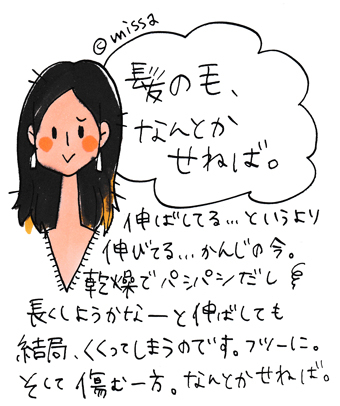 ©missa
髪の毛、
なんとか
せねば。
伸ばしてる…というより
伸びてる…かんじの今。
乾燥でパシパシだし
長くしようかなーと伸ばしても
結局、くくってしまうのです。フツーに。
そして傷む一方。なんとかせねば。